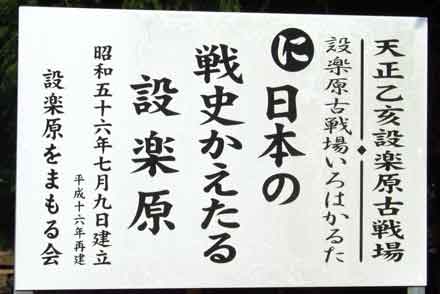 天正乙亥設楽原古戦場
設楽原古戦場いろはかるた
に
日本の
戦史かえたる
設楽原
昭和五十六年七月九日建立
平成十六年再建
設楽原をまもる会